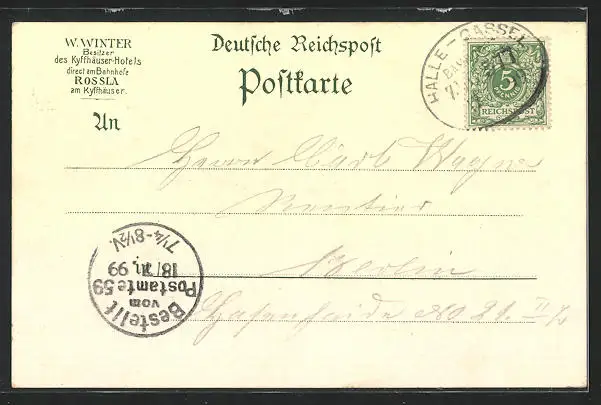 W. WINTER
Besitzer
des Kyffhäuser-Hotels
direct am Bahnhofe
ROSSLA
am Kyffhäuser.
Deutsche Reichspost
Postkarte
HALLE - CASSEL
5
REICHSPOST
An
Herrn Carl Wagner
Rentier
Berlin
Hasenheide No 21. II
Bestellt
vom
Postamte 59
18/ 99
7¼-8½V.